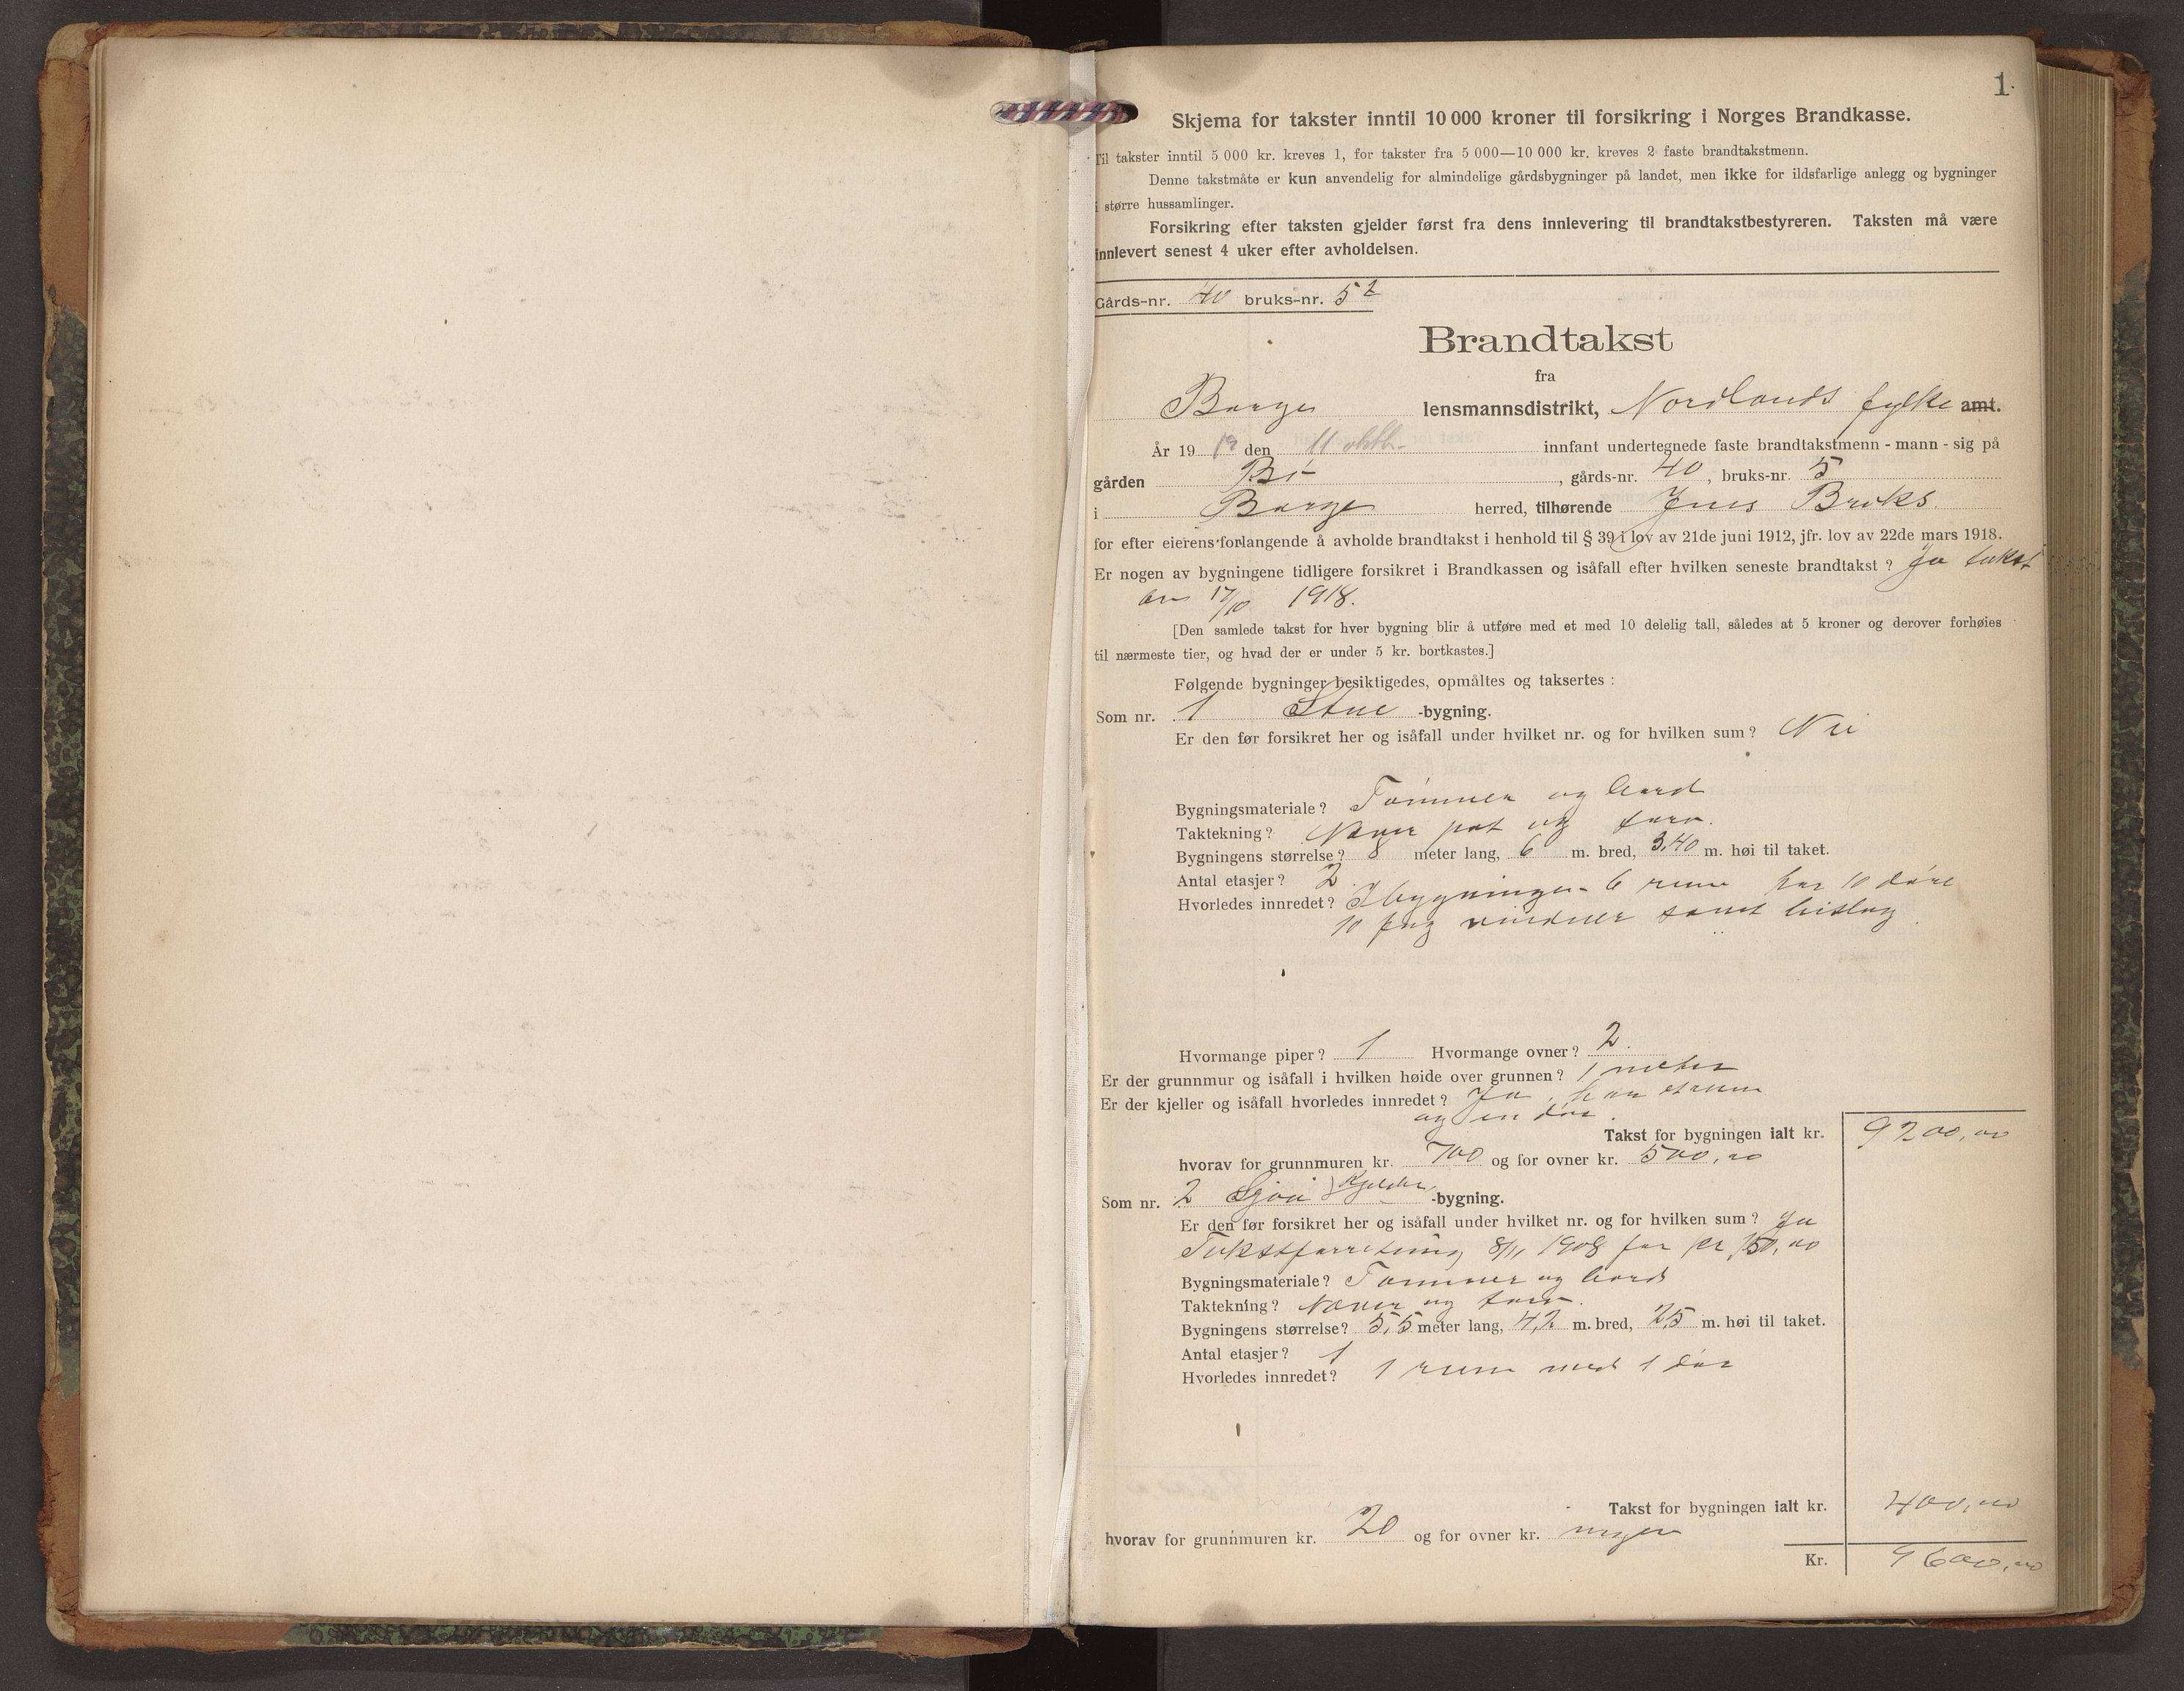 1.
Skjema for takster inntil 10 000 kroner til forsikring i Norges Brandkasse.
Til takster inntil 5 000 kr. kreves 1, for takster fra 5 000—10 000 kr. kreves 2 faste brandtakstmenn.
Denne takstmåte er kun anvendelig for almindelige gårdsbygninger på landet, men ikke for ildsfarlige anlegg og bygninger
i større hussamlinger.
Forsikring efter taksten gjelder først fra dens innlevering til brandtakstbestyreren. Taksten må være
innlevert senest 4 uker efter avholdelsen.
Gårds-nr. 40 bruks-nr. 5
Brandtakst
fra
Borge lensmannsdistrikt, Nordlands fylke amt.
År 19 19 den 11 oktbr. innfant undertegnede faste brandtakstmenn - mann - sig på
gården Bø, gårds-nr. 40, bruks-nr. 5
i Borge herred, tilhørende Jens Broks.
for efter eierens forlangende å avholde brandtakst i henhold til § 39 i lov av 21de juni 1912, jfr. lov av 22de mars 1918.
Er nogen av bygningene tidligere forsikret i Brandkassen og isåfall efter hvilken seneste brandtakst? Ja takst
av 17/10 1918.
[Den samlede takst for hver bygning blir å utføre med et med 10 delelig tall, således at 5 kroner og derover forhøies
til nærmeste tier, og hvad der er under 5 kr. bortkastes.]
Følgende bygninger besiktigedes, opmåltes og taksertes :
Som nr. 1 Stue -bygning.
Er den før forsikret her og isåfall under hvilket nr. og for hvilken sum? Nei
Bygningsmateriale? Tømmer og bord
Taktekning? Næver pat og torv.
Bygningens størrelse? 8 meter lang, 6 m. bred, 3,40 m. høi til taket.
Antal etasjer? 2
Hvorledes innredet? I bygningen 6 rum har 10 døre
10 fag vinduer samt bislag.
Hvormange piper? 1 Hvormange ovner? 2.
Er der grunnmur og isåfall i hvilken høide over grunnen? 1 meter
Er der kjeller og isåfall hvorledes innredet? Ja, har et rum
og en dør.
Takst for bygningen ialt kr. 9200,00
hvorav for grunnmuren kr. 700 og for ovner kr. 500,00
Som nr. 2 Sjåi Kjelder -bygning.
Er den før forsikret her og isåfall under hvilket nr. og for hvilken sum? Ja
Takstforretning 8/11 1908 for kr 150,00
Bygningsmateriale? Tømmer og bord
Taktekning? Næver og torv.
Bygningens størrelse? 5,5 meter lang, 4,2 m. bred, 2,5 m. høi til taket.
Antal etasjer? 1
Hvorledes innredet? 1 rum med 1 dør
Takst for bygningen ialt kr. 400,00
hvorav for grunnmuren kr. 20 og for ovner kr. ingen
Kr. 9600,00